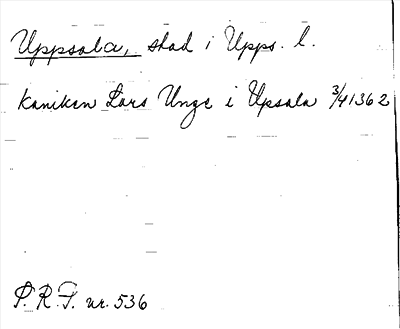 Uppsala, stad i Upps. l.
Kaniken Lars Unge i Upsala 3/4 1362
P. R. F. nr. 536